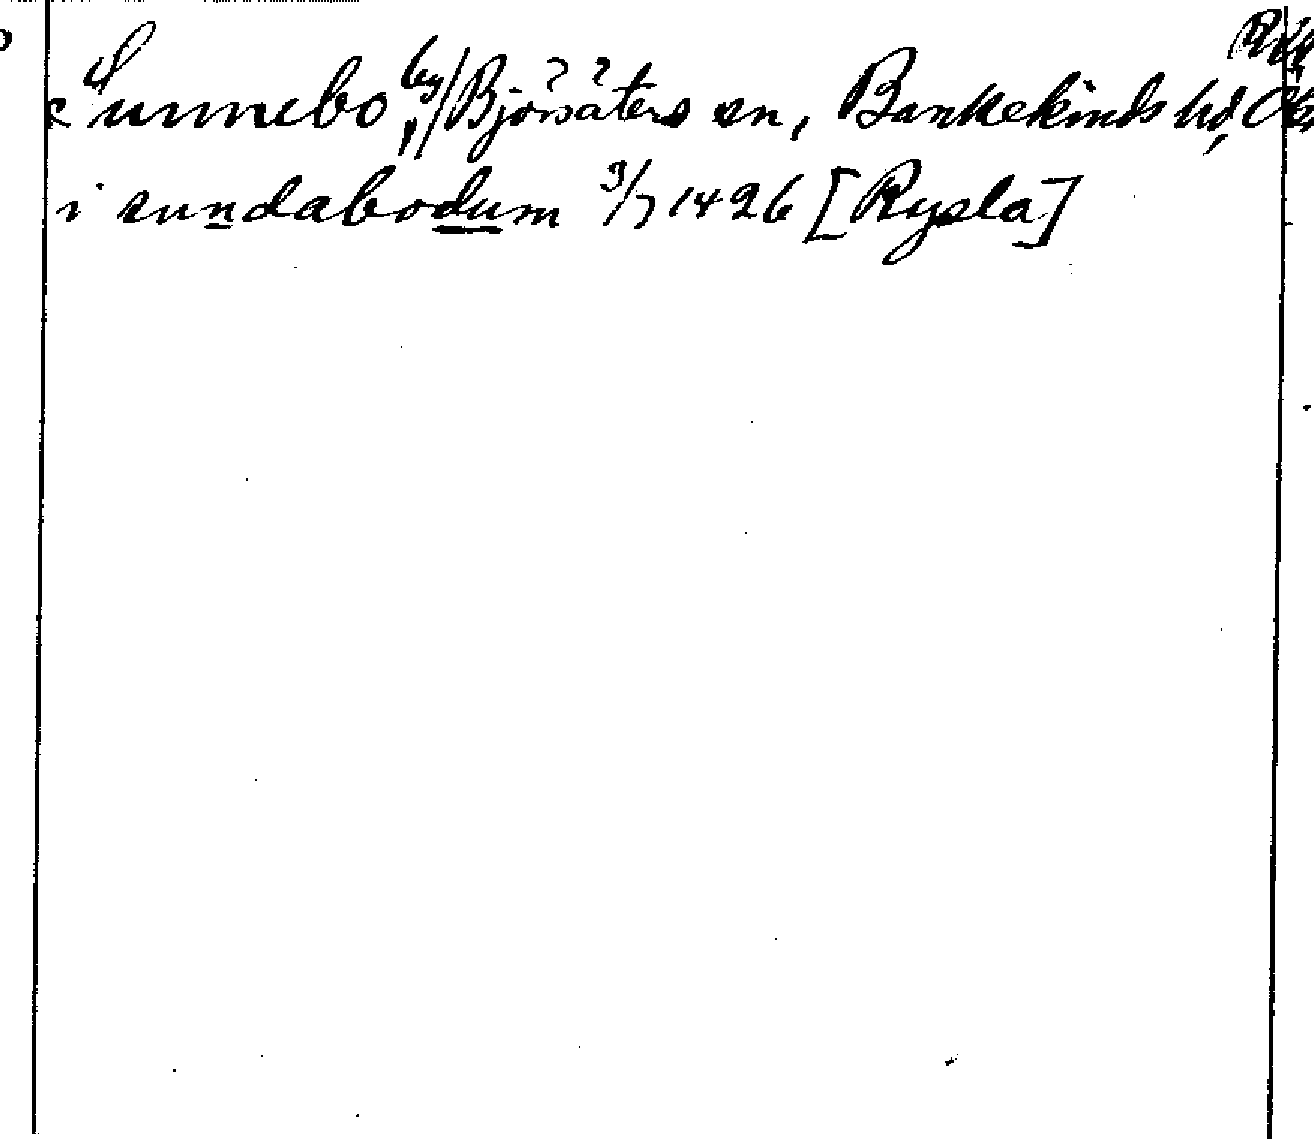 Sunnebo, by, Björsäters sn, Bankekinds hd,
i sundabodum 9/7 1426 [Rysla]